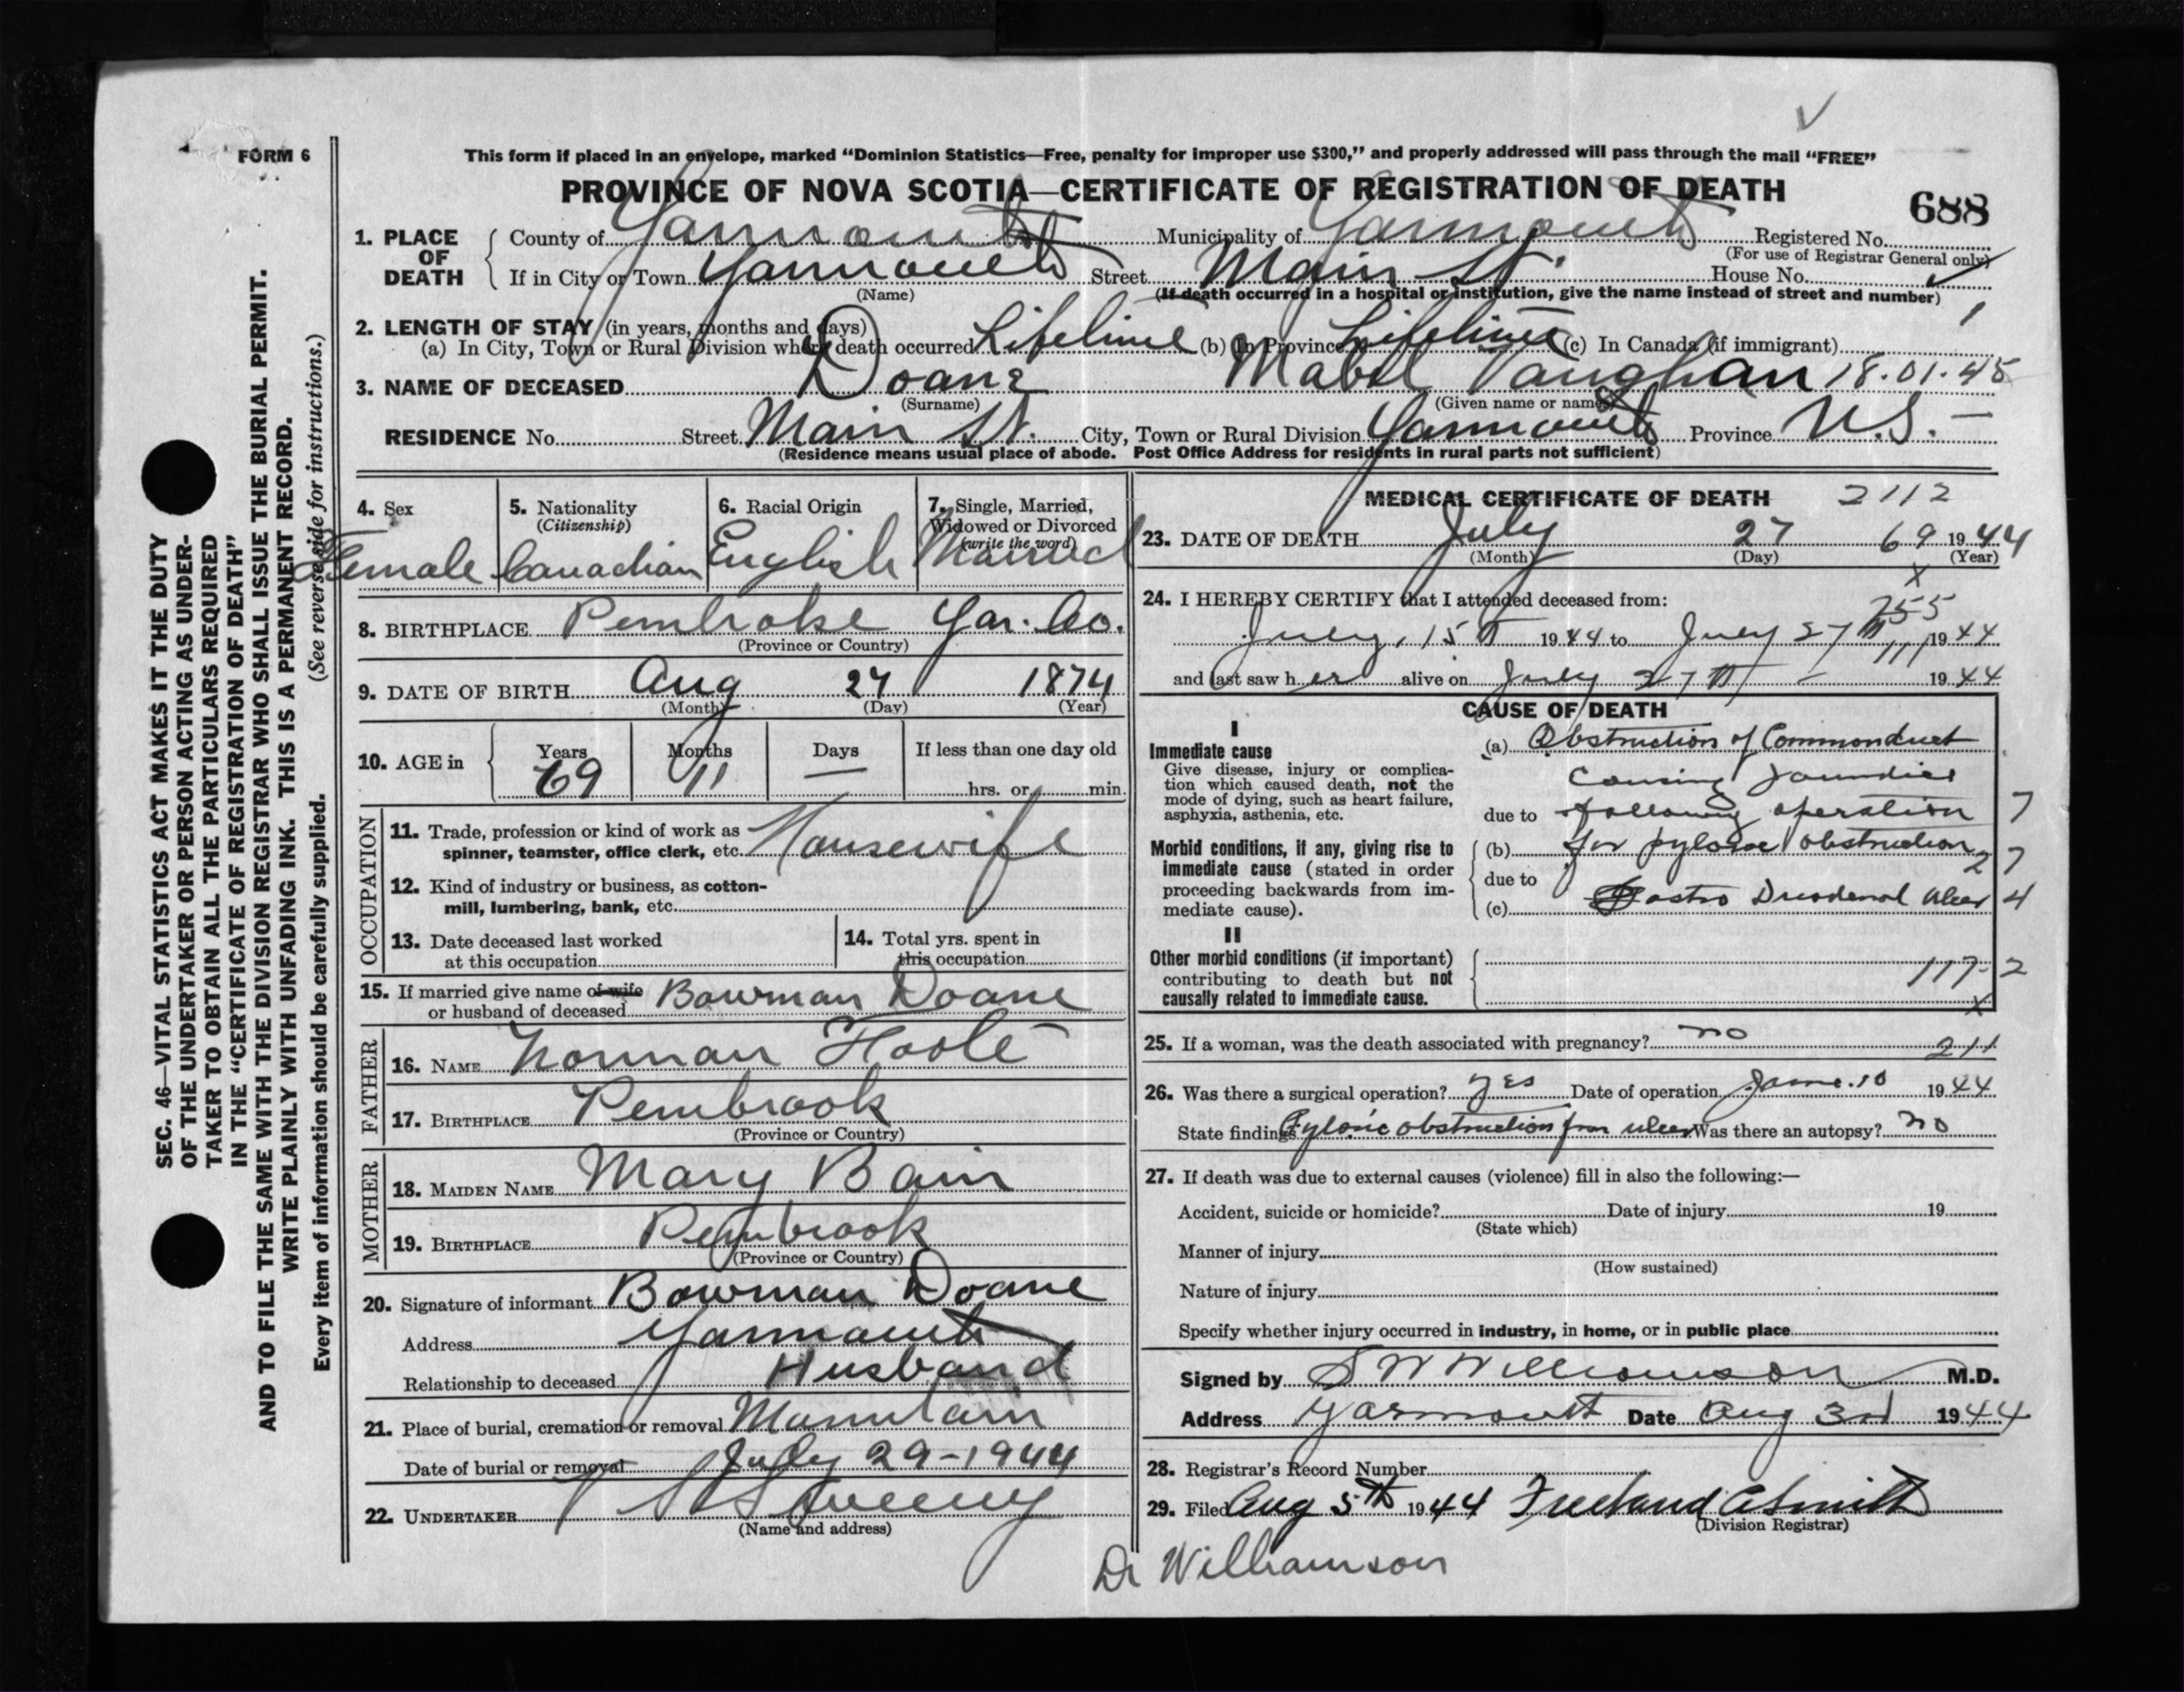 FORM 6
This form if placed in an envelope, marked “Dominion Statistics—Free, penalty for improper use $300,” and properly addressed will pass through the mail “FREE”
PROVINCE OF NOVA SCOTIA—CERTIFICATE OF REGISTRATION OF DEATH
688
1. PLACE OF DEATH
County of Yarmouth Municipality of Yarmouth Registered No.
(For use of Registrar General only)
If in City or Town Yarmouth Street Main St. House No.
(Name) (If death occurred in a hospital or institution, give the name instead of street and number)
2. LENGTH OF STAY (in years, months and days)
(a) In City, Town or Rural Division where death occurred Lifetime (b) In Province Lifetime (c) In Canada (if immigrant)
3. NAME OF DECEASED Doane Mabel Vaughan 18.01.45
(Surname) (Given name or names)
RESIDENCE No. Street Main St. City, Town or Rural Division Yarmouth Province N.S. —
(Residence means usual place of abode. Post Office Address for residents in rural parts not sufficient)
4. Sex
Female
5. Nationality
(Citizenship)
Canadian
6. Racial Origin
English
7. Single, Married,
Widowed or Divorced
(write the word)
Married
8. BIRTHPLACE Pembroke Yar. Co.
(Province or Country)
9. DATE OF BIRTH Aug 27 1874
(Month) (Day) (Year)
10. AGE in
Years Months Days If less than one day old
69 11 — hrs. or min.
OCCUPATION
11. Trade, profession or kind of work as
spinner, teamster, office clerk, etc. Housewife
12. Kind of industry or business, as cotton-
mill, lumbering, bank, etc.
13. Date deceased last worked
at this occupation
14. Total yrs. spent in
this occupation
15. If married give name of wife
or husband of deceased Bowman Doane
FATHER
16. NAME Norman
17. BIRTHPLACE Pembrook
(Province or Country)
MOTHER
18. MAIDEN NAME Mary Bain
19. BIRTHPLACE Pembrook
(Province or Country)
20. Signature of informant Bowman Doane
Address Yarmouth
Relationship to deceased Husband
21. Place of burial, cremation or removal Mountain
Date of burial or removal July 29-1944
22. UNDERTAKER Sweeny
(Name and address)
MEDICAL CERTIFICATE OF DEATH 2112
23. DATE OF DEATH July 27 69 1944
(Month) (Day) (Year)
x
24. I HEREBY CERTIFY that I attended deceased from:
255
July, 15th 1944 to July 27th 1944
and last saw her alive on July 27th 1944
CAUSE OF DEATH
I
Immediate cause
Give disease, injury or complica-
tion which caused death, not the
mode of dying, such as heart failure,
asphyxia, asthenia, etc.
(a) Obstruction of Common duct
causing Jaundice
due to following operation 7
Morbid conditions, if any, giving rise to
immediate cause (stated in order
proceeding backwards from im-
mediate cause).
(b) for pyloric obstruction 27
due to
(c) Gastro Duodenal Ulcer 4
II
Other morbid conditions (if important)
contributing to death but not
causally related to immediate cause.
117-2
x
25. If a woman, was the death associated with pregnancy? no
211
26. Was there a surgical operation? yes Date of operation 10 1944
State findings Pyloric obstruction from ulcer Was there an autopsy? no
27. If death was due to external causes (violence) fill in also the following:—
Accident, suicide or homicide? Date of injury 19
(State which)
Manner of injury
(How sustained)
Nature of injury
Specify whether injury occurred in industry, in home, or in public place
Signed by S W Williamson M.D.
Address Yarmouth Date Aug 3rd 1944
28. Registrar's Record Number
29. Filed Aug 5th 1944 Freeland A Smith
(Division Registrar)
Dr Williamson
SEC. 46—VITAL STATISTICS ACT MAKES IT THE DUTY
OF THE UNDERTAKER OR PERSON ACTING AS UNDER-
TAKER TO OBTAIN ALL THE PARTICULARS REQUIRED
IN THE “CERTIFICATE OF REGISTRATION OF DEATH”
AND TO FILE THE SAME WITH THE DIVISION REGISTRAR WHO SHALL ISSUE THE BURIAL PERMIT.
WRITE PLAINLY WITH UNFADING INK. THIS IS A PERMANENT RECORD.
Every item of information should be carefully supplied. (See reverse side for instructions.)